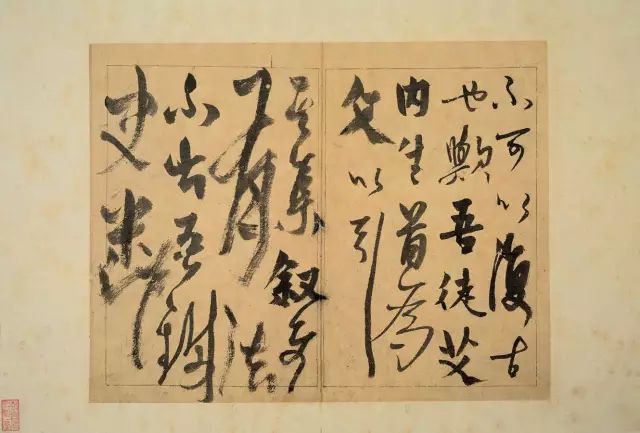 不可以復古
也歟吾徒艾
内生首為
文以引
其集叙
有法
不出吾
史米